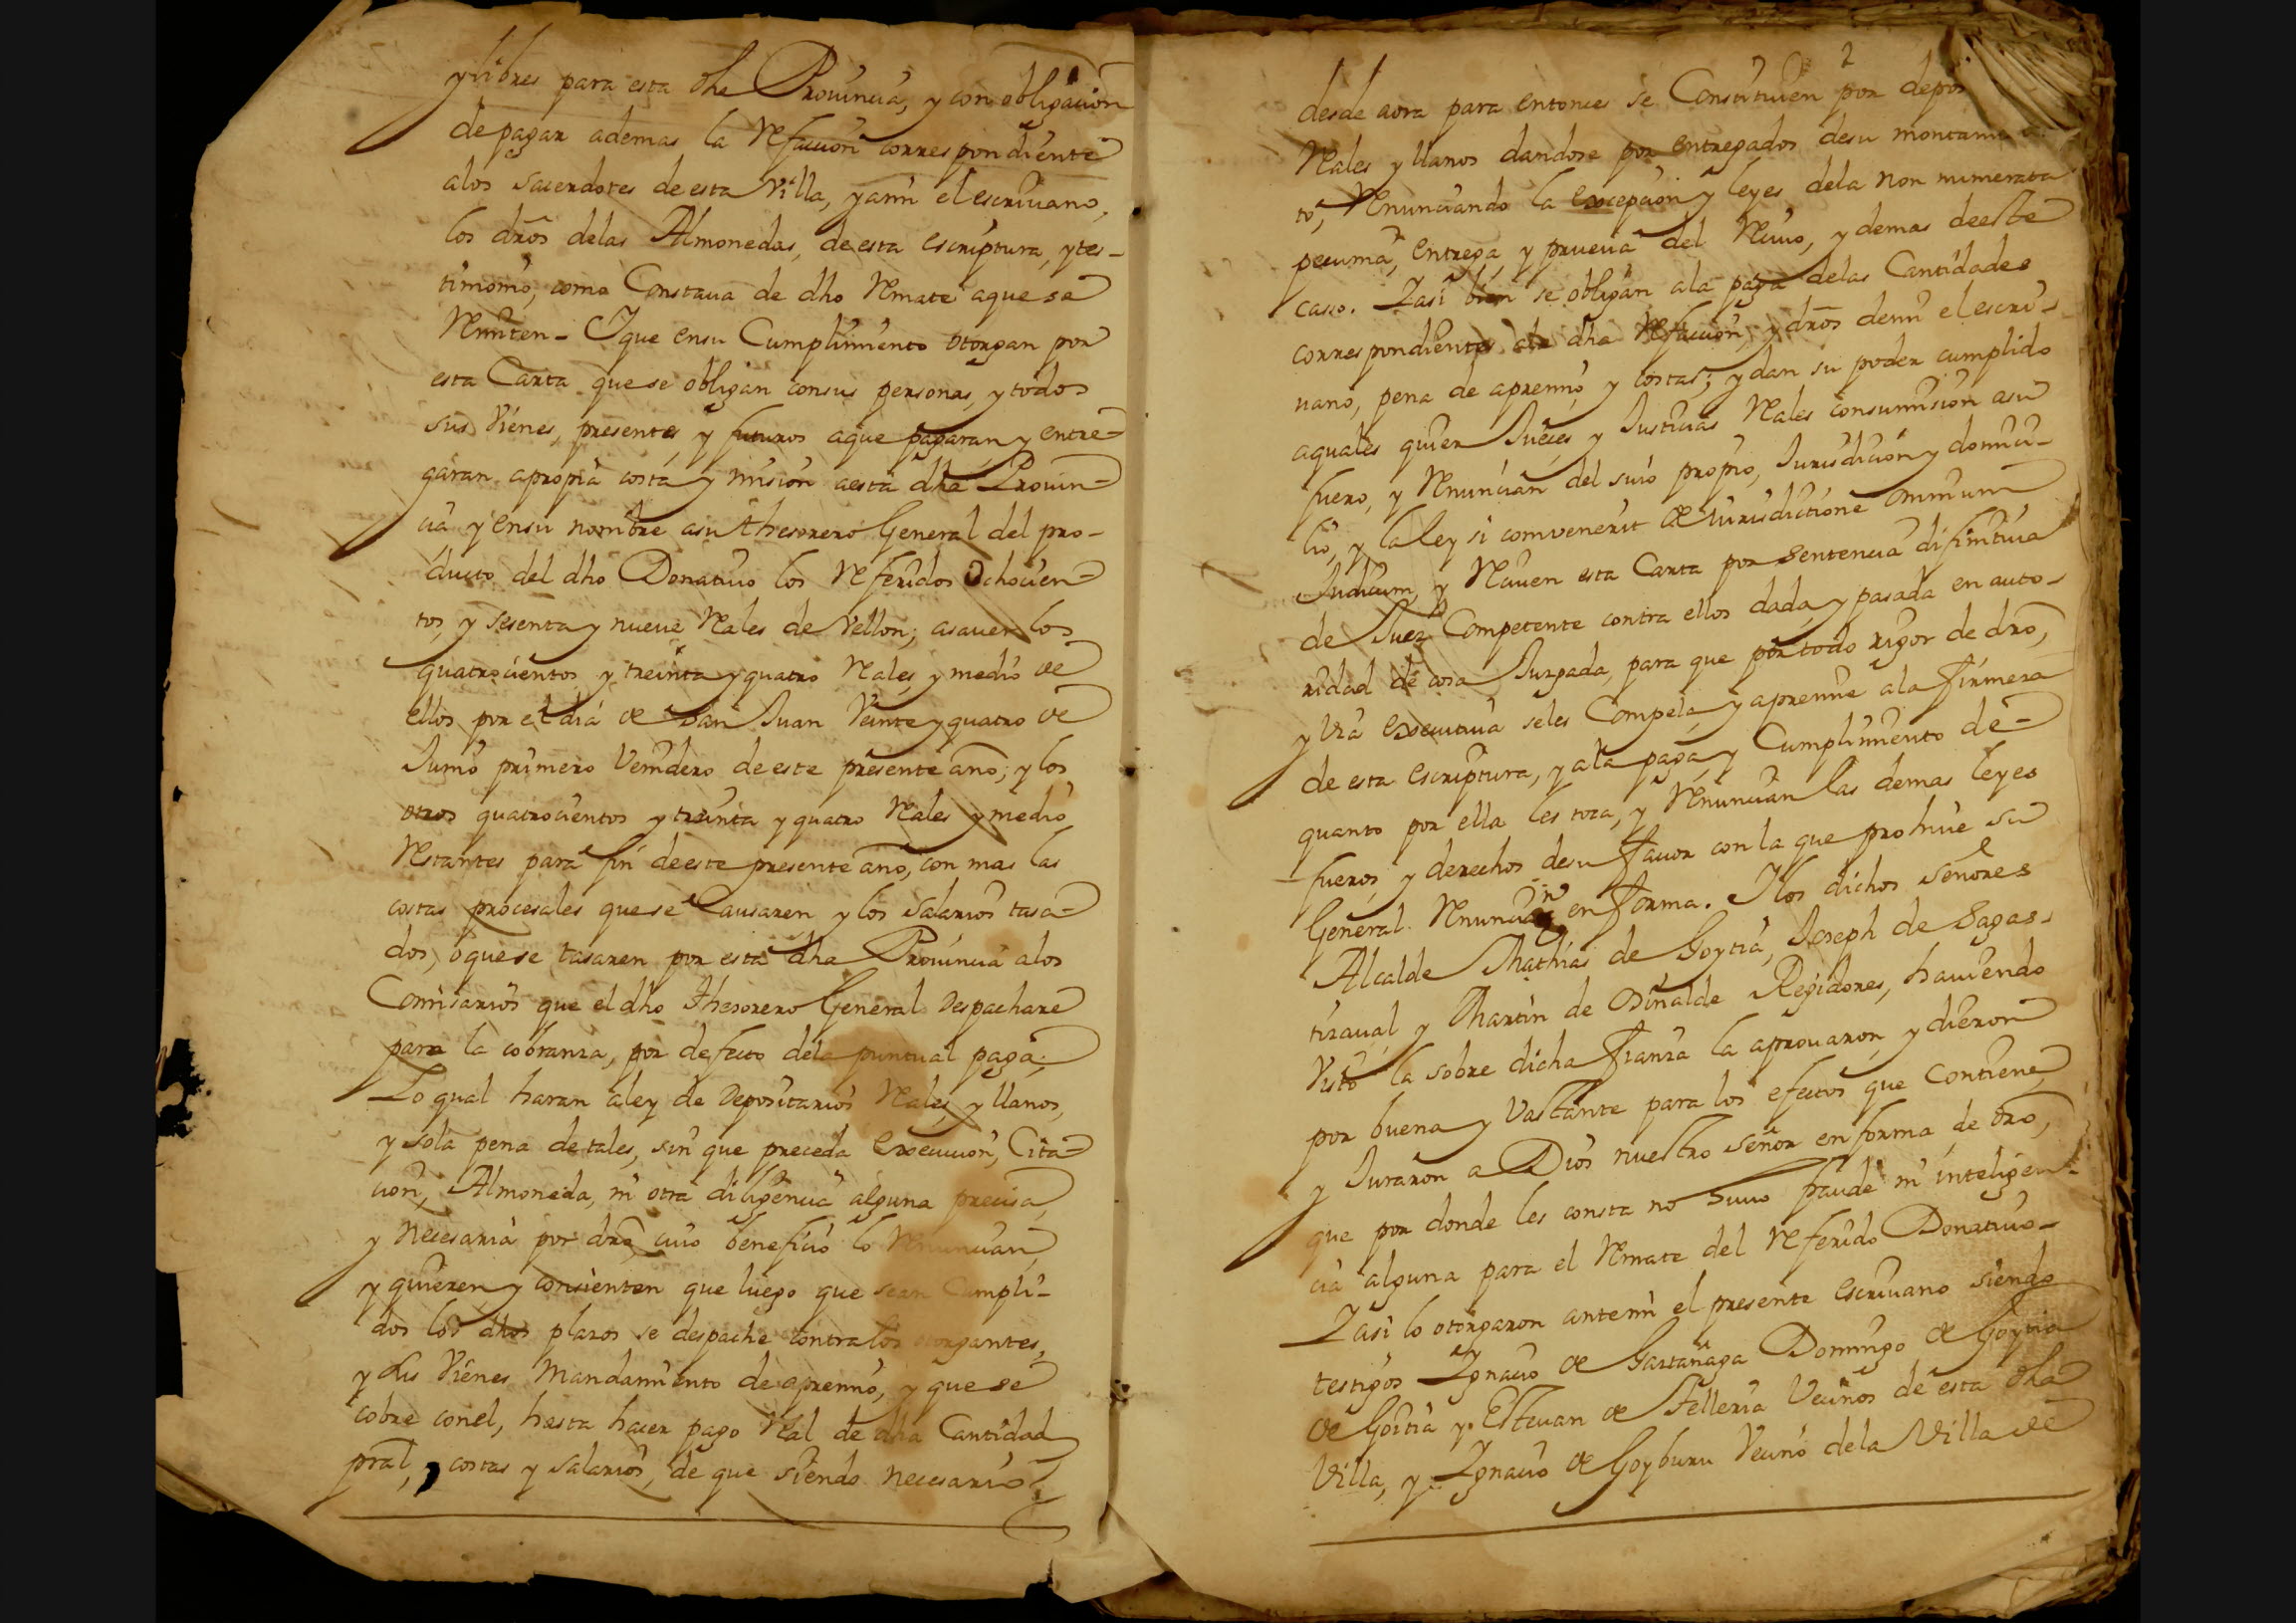 y libres para esta dha Provincia, y con obligacion
de pagar ademas la Refaccion correspondiente
a los sacerdotes de esta Villa, y a mi el escrivano,
los dros delas Almonedas, de esta escriptura, y tes-
timonio, como Constava de dho Remate a que se
Remiten - Y que en su Cumplimiento otorgan por
esta Carta que se obligan con sus personas, y todos
sus Vienes, presentes y futuros a que pagaran, y entre-
garan a propia costa y mision a esta dha Provin-
cia y en su nombre a su thesorero General del pro-
ducto del dho Donativo los Referidos Ochocien-
tos, y sesenta y nueve Rales de Vellon; a saver los
quatrocientos y treinta y quatro Rales, y medio de
ellos por el dia de San Juan Veinte y quatro de
Junio primero Venidero de este presente año; y los
otros quatrocientos y treinta y quatro Rales y medio
Restantes para fin de este presente año, con mas las
costas procesales que se Causaren y los Salarios tasa-
dos, o que se tasaren por esta dha Provincia a los
Comisarios que el dho thesorero General Despachare
para la cobranza, por defecto dela puntual paga;
Lo qual haran a ley de Depositarios Rales, y llanos,
y sola pena de tales, sin que preceda execucion, Cita-
cion, Almoneda, ni otra diligencia alguna precisa,
y necesaria por dro, cuio beneficio lo Renuncian,
y quieren y consienten que luego que sean Cumpli-
dos los dhos plazos se despache contra los otorgantes,
y sus Vienes Mandamiento de apremio, y que se
cobre con el, hasta hacer pago Ral de dha Cantidad
pral, costas y salarios, de que siendo necesario
2
desde aora para entonces se Constituien por depos
Rales y llanos dandose por entregados de su montamien
to, Renunciando la excepcion y leyes dela non numerata
pecunia, entrega, y prueva del Recivo, y demas de este
caso. Y asi bien se obligan ala paga delas Cantidades
correspondientes ala dha Refaccion, y dros de mi el escri-
vano, pena de apremio, y costas; y dan su poder cumplido
a quales quier Jueces, y Justicias Rales con sumision a su
fuero, y Renuncian del suio propio, Jurisdicion y domici-
lio, y la ley si convenerit de iurisdictione omnium
Judicum, y Reciven esta Carta por sentencia difinitiva
de Juez Competente contra ellos dada, y pasada en auto-
ridad de cosa Juzgada, para que por todo rigor de dro,
y via executiva se les Compela, y apremie ala firmeza
de esta escriptura, y ala paga, y Cumplimiento de
quanto por ella les toca, y Renuncian las demas leyes
fueros, y derechos de su favor con la que prohive su
General Renunciacion en forma. Y los dichos señores
Alcalde Mathias de Goytia, Joseph de Sagas-
tizaval, y Martin de Odinalde Regidores, haviendo
Visto la sobre dicha fianza la aprovaron, y dieron
por buena y Vastante para los efectos que Contiene,
y Juraron a Dios nuestro señor en forma de dro,
que por donde les consta no huvo fraude ni inteligen-
cia alguna para el Remate del Referido Donativo-
Y asi lo otorgaron ante mi el presente escrivano siendo
testigos Ygnacio de Gastañaga Domingo de Goytia
de Goitia y Estevan de Telleria Vecinos de esta dha
Villa, y Ygnacio de Goyburu Vecino dela Villa de